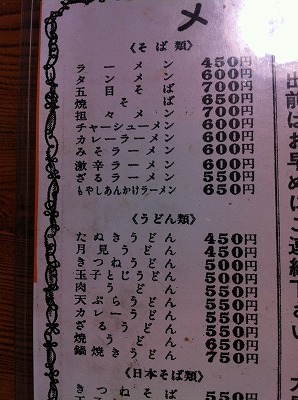 メ
《そば類》
ラーメン 450円
タンメン 600円
五目そば 700円
焼そば 650円
担々メン 700円
チャーシューメン 600円
カレーラーメン 600円
みそラーメン 600円
激辛ラーメン 600円
ざるラーメン 550円
もやしあんかけラーメン 650円
《うどん類》
たぬきうどん 450円
月見うどん 450円
きつねうどん 500円
玉子とじうどん 500円
肉うどん 500円
天ぷらうどん 550円
カレーうどん 550円
ざるうどん 550円
焼うどん 650円
鍋焼きうどん 750円
《日本そば類》
きつねそば 550円
出前はお早めにご連絡下さい